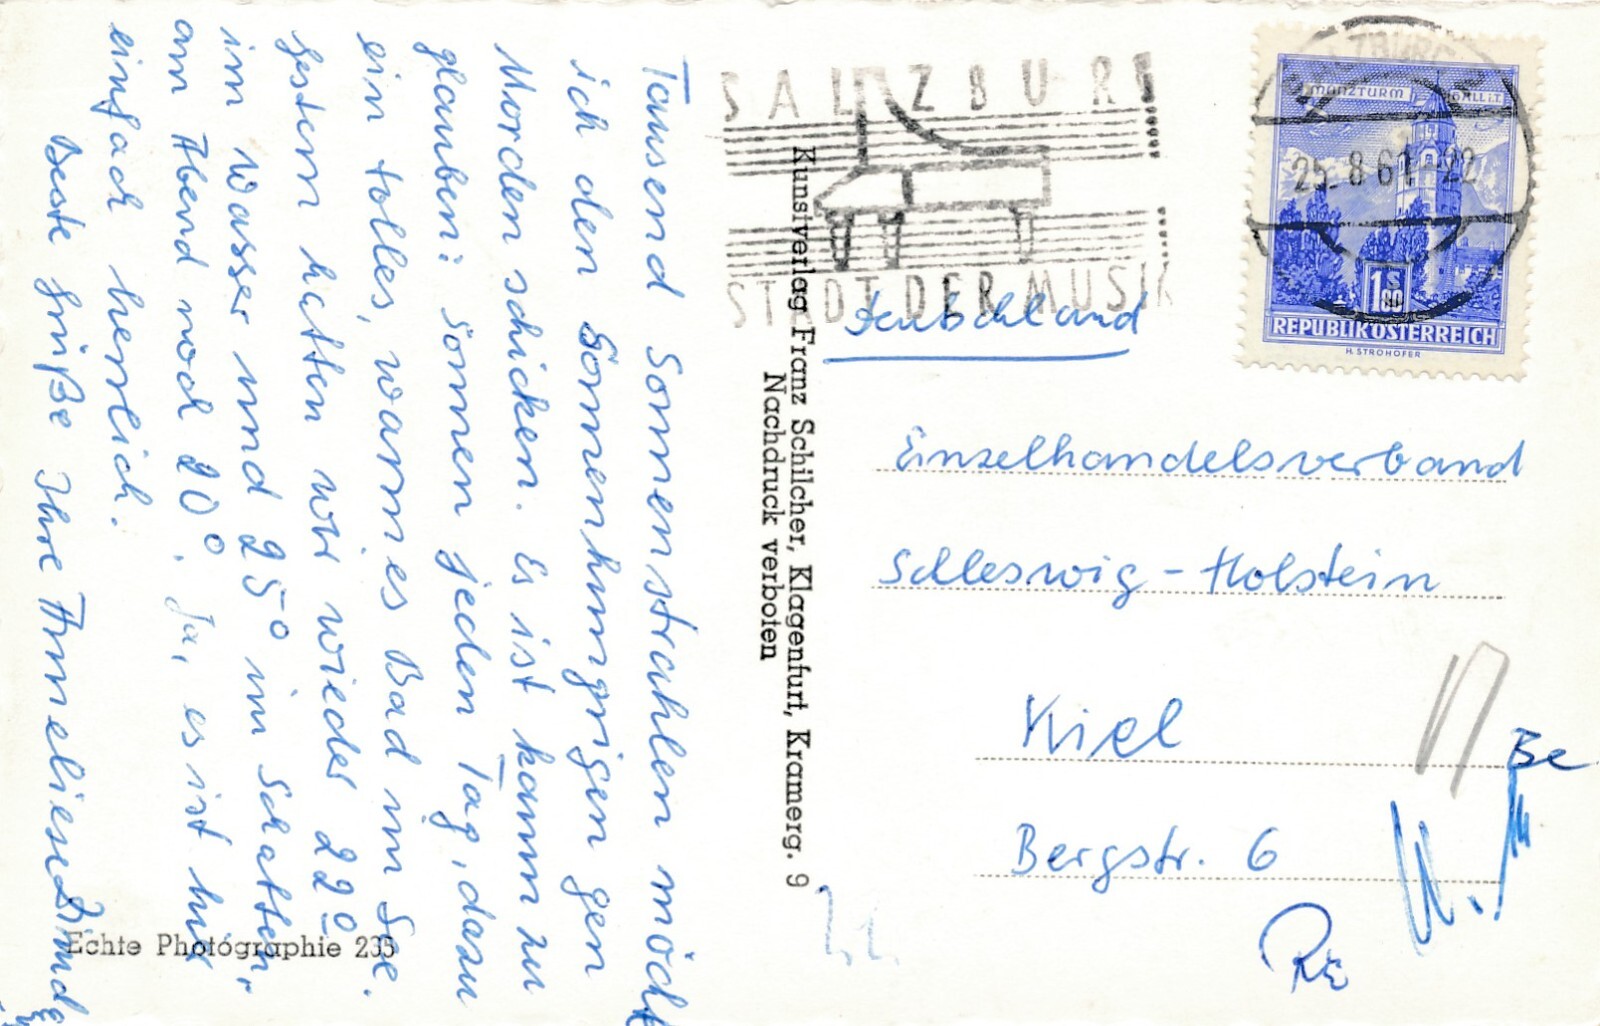 Tausend Sonnenstrahlen möcht
ich den Sonnenhungrigen gen
Norden schicken. Es ist kaum zu
glauben: Sonnen jeden Tag, dazu
ein tolles, warmes Bad im See.
Gestern hatten wir wieder 22°
im Wasser und 25° im Schatten,
am Abend noch 20°. Ja, es ist hier
einfach herrlich.
Beste Grüße Ihre Anneliese
Echte Photographie 235
Kunstverlag Franz Schilcher, Klagenfurt, Kramerg. 9
Nachdruck verboten
SALZBURG
STADT DER MUSIK
SALZBURG
25.8.61-22
MÜNZTURM
HALL i.T.
S 1.80
REPUBLIK ÖSTERREICH
H. STROHOFER
Deutschland
Einzelhandelsverband
Schleswig-Holstein
Kiel
Bergstr. 6
Be